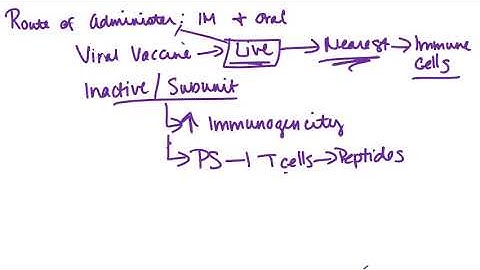 Route of Administer: IM + Oral
Viral Vaccine → Live → Nearest → Immune Cells
Inactive / Subunit
↑ Immunogencity
PS ⊣ T cells → Peptides